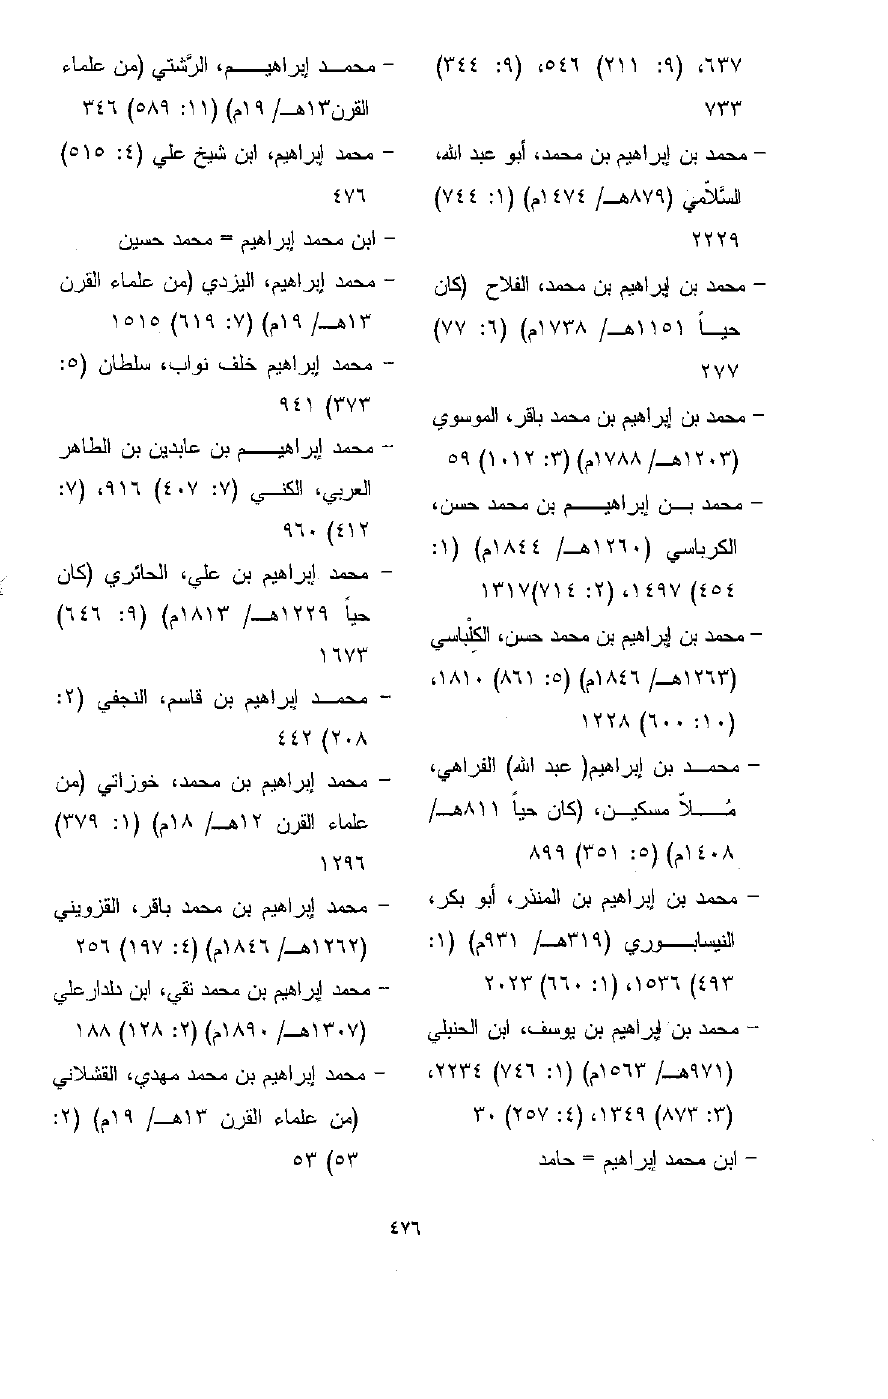 ٦٣٧، (٩: ٢١١) ٥٤٦، (٩: ٣٤٤)
٧٣٣
– محمد بن إبراهيم بن محمد، أبو عبد الله،
السَّلاّمي (٨٧٩هـ/ ١٤٧٤م) (١: ٧٤٤)
٢٢٢٩
– محمد بن إبراهيم بن محمد، الفلاح (كان
حياً ١١٥١هـ/ ١٧٣٨م) (٦: ٧٧)
٢٧٧
– محمد بن إبراهيم بن محمد باقر، الموسوي
(١٢٠٣هـ/ ١٧٨٨م) (٣: ١٠١٢) ٥٩
– محمد بن إبراهيم بن محمد حسن،
الكرباسي (١٢٦٠هـ/ ١٨٤٤م) (١:
٤٥٤) ١٤٩٧، (٢: ٧١٤)١٣١٧
– محمد بن إبراهيم بن محمد حسن، الكلْباسي
(١٢٦٣هـ/ ١٨٤٦م) (٥: ٨٦١) ١٨١٠،
(١٠: ٦٠٠) ١٢٢٨
– محمد بن إبراهيم( عبد الله) الفراهي،
مُلاّ مسكين، (كان حياً ٨١١هـ/
١٤٠٨م) (٥: ٣٥١) ٨٩٩
– محمد بن إبراهيم بن المنذر، أبو بكر،
النيسابوري (٣١٩هـ/ ٩٣١م) (١:
٤٩٣) ١٥٣٦، (١: ٦٦٠) ٢٠٢٣
– محمد بن إبراهيم بن يوسف، ابن الحنبلي
(٩٧١هـ/ ١٥٦٣م) (١: ٧٤٦) ٢٢٣٤،
(٣: ٨٧٣) ١٣٤٩، (٤: ٢٥٧) ٣٠
– ابن محمد إبراهيم = حامد
– محمد إبراهيم، الرَّشتي (من علماء
القرن١٣هـ/ ١٩م) (١١: ٥٨٩) ٣٤٦
– محمد إبراهيم، ابن شيخ علي (٤: ٥١٥)
٤٧٦
– ابن محمد إبراهيم = محمد حسين
– محمد إبراهيم، اليزدي (من علماء القرن
١٣هـ/ ١٩م) (٧: ٦١٩) ١٥١٥
– محمد إبراهيم خلف نواب، سلطان (٥:
٣٧٣) ٩٤١
– محمد إبراهيم بن عابدين بن الطاهر
العربي، الكني (٧: ٤٠٧) ٩١٦، (٧:
٤١٢) ٩٦٠
– محمد إبراهيم بن علي، الحائري (كان
حياً ١٢٢٩هـ/ ١٨١٣م) (٩: ٦٤٦)
١٦٧٣
– محمد إبراهيم بن قاسم، النجفي (٢:
٢٠٨) ٤٤٢
– محمد إبراهيم بن محمد، خوزاتي (من
علماء القرن ١٢هـ/ ١٨م) (١: ٣٧٩)
١٢٩٦
– محمد إبراهيم بن محمد باقر، القزويني
(١٢٦٢هـ/ ١٨٤٦م) (٤: ١٩٧) ٢٥٦
– محمد إبراهيم بن محمد تقي، ابن دلدارعلي
(١٣٠٧هـ/ ١٨٩٠م) (٢: ١٢٨) ١٨٨
– محمد إبراهيم بن محمد مهدي، القشلاني
(من علماء القرن ١٣هـ/ ١٩م) (٢:
٥٣) ٥٣
٤٧٦